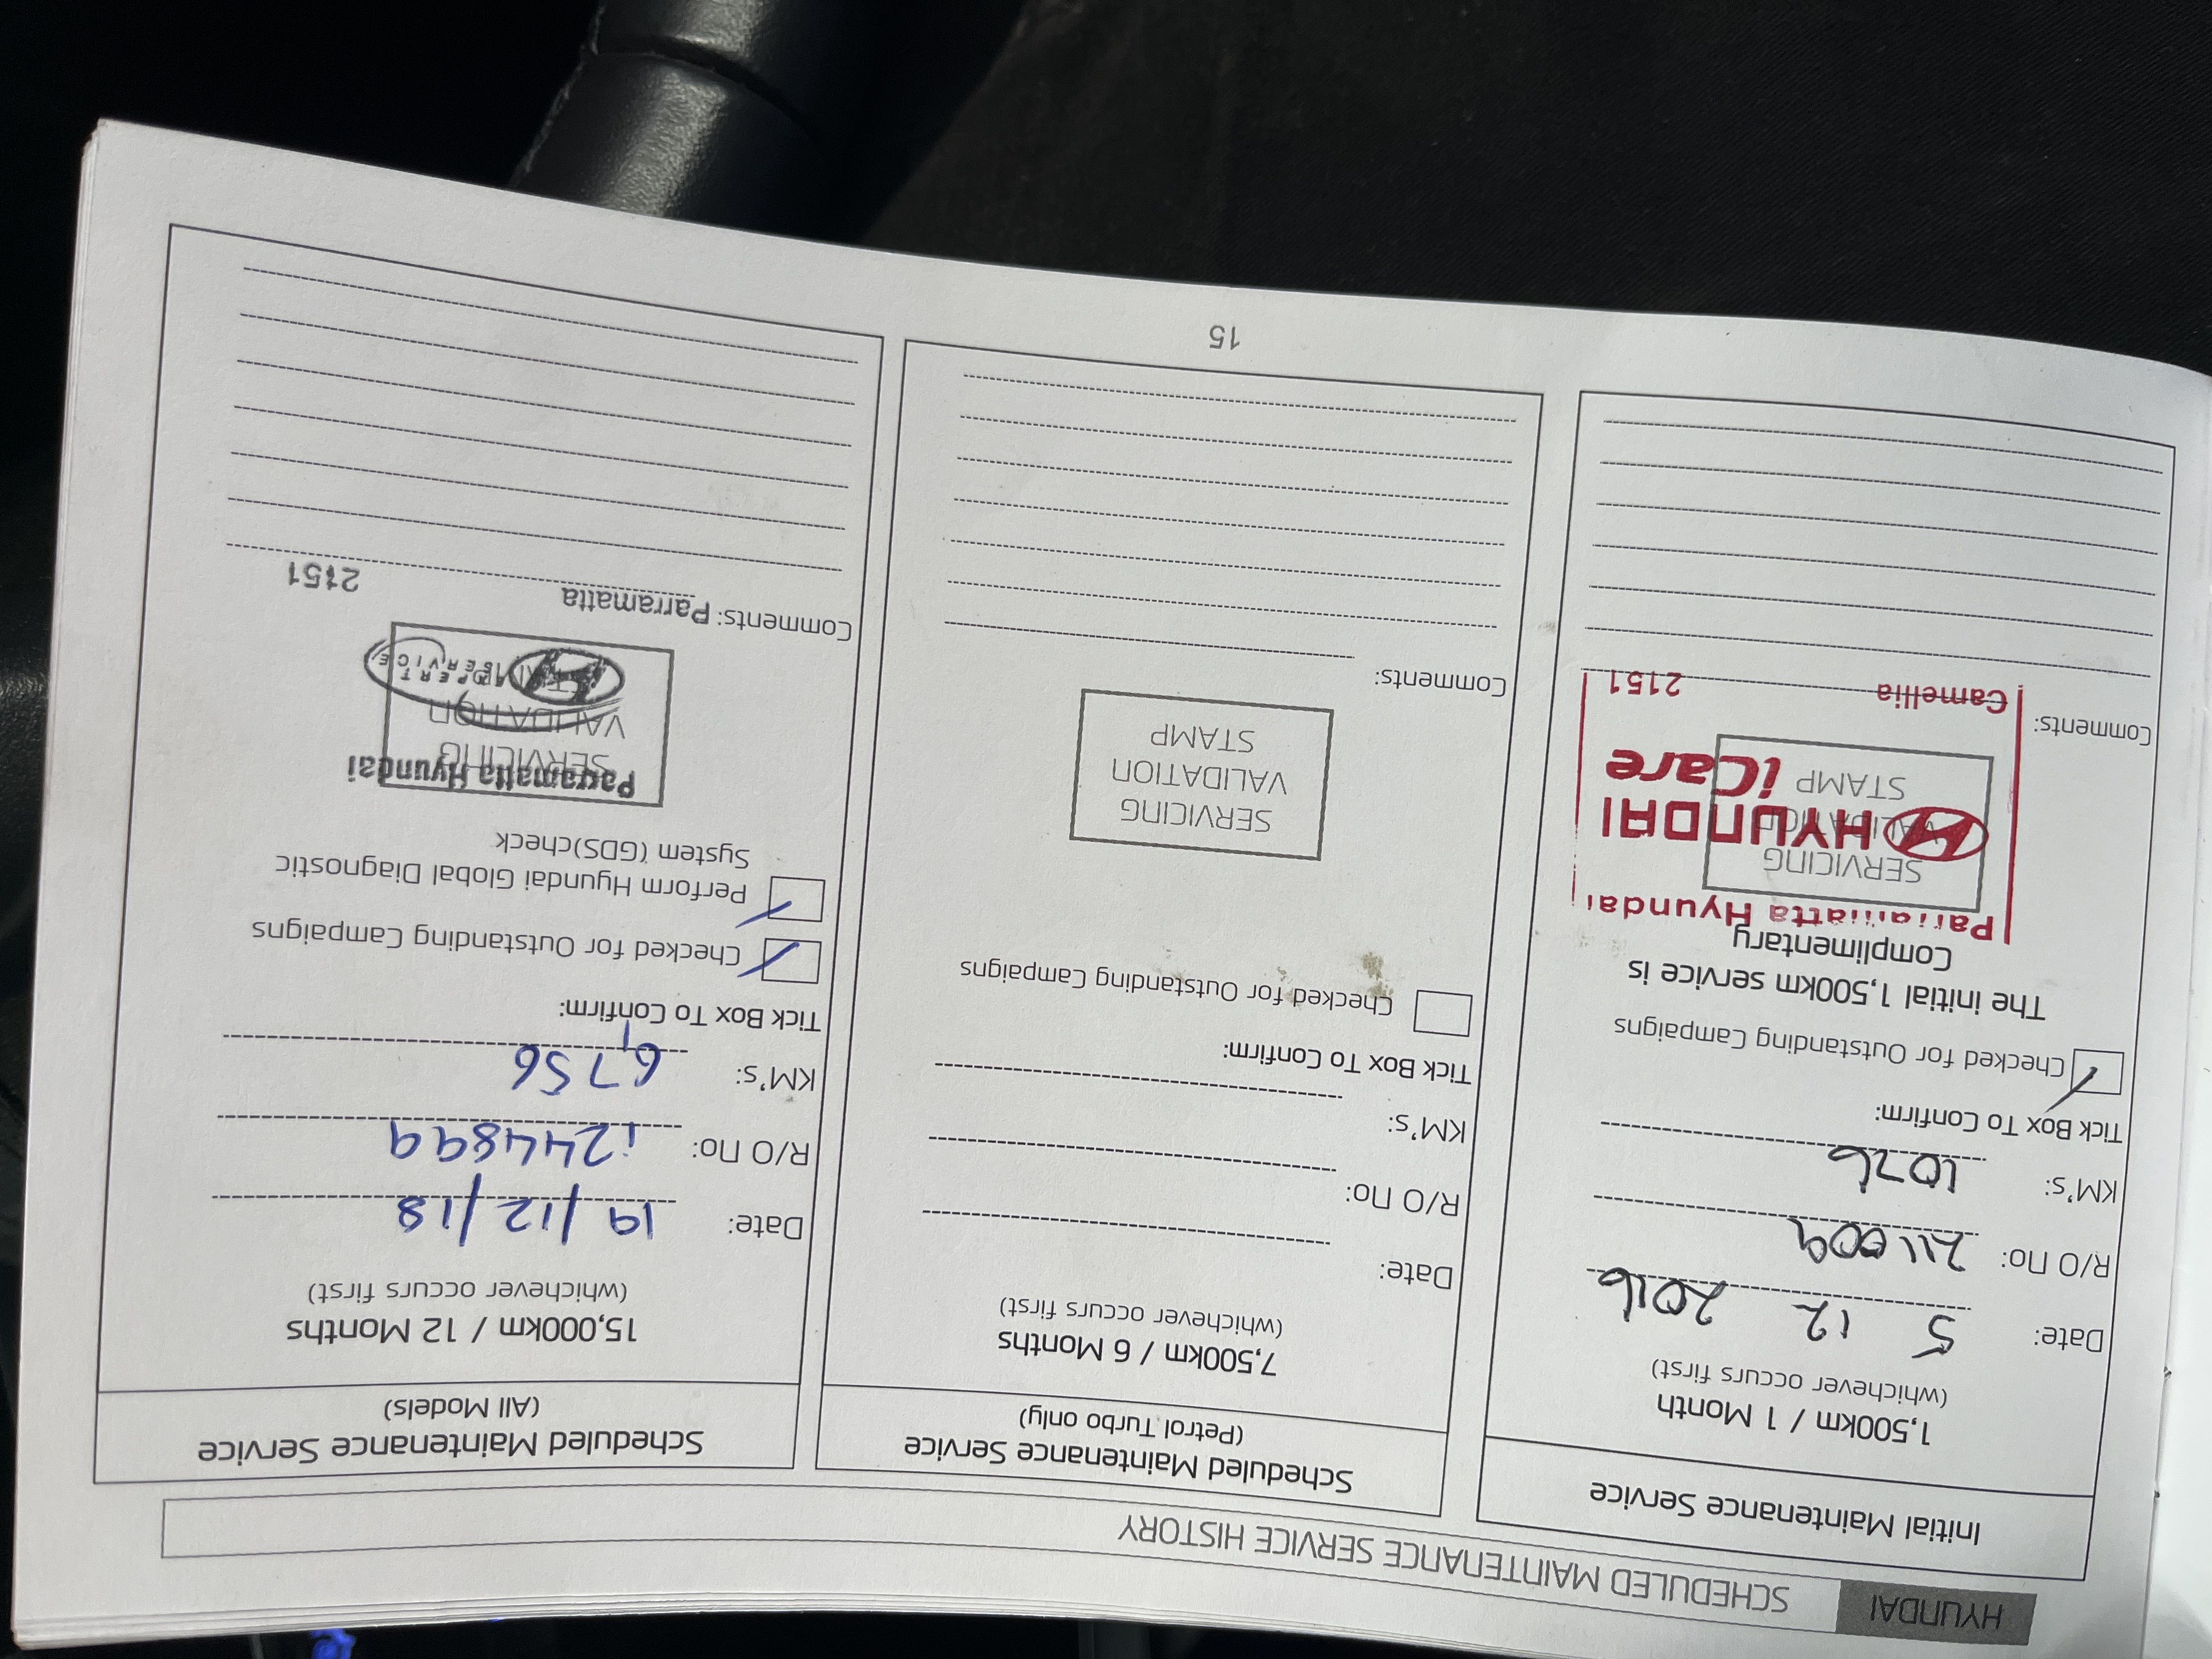 HYUNDAI
SCHEDULED MAINTENANCE SERVICE HISTORY
Initial Maintenance Service
1,500km / 1 Month
(whichever occurs first)
Date: 5 12 2016
R/O no: 211009
KM's: 1076
Tick Box To Confirm:
Checked for Outstanding Campaigns
The initial 1,500km service is
Complimentary
Parramatta Hyundai
SERVICING
VALIDATION
STAMP
HYUNDAI
iCare
Comments:
Camellia 2151
Scheduled Maintenance Service
(Petrol Turbo only)
7,500km / 6 Months
(whichever occurs first)
Date:
R/O no:
KM's:
Tick Box To Confirm:
Checked for Outstanding Campaigns
SERVICING
VALIDATION
STAMP
Comments:
Scheduled Maintenance Service
(All Models)
15,000km / 12 Months
(whichever occurs first)
Date: 19/12/18
R/O no: i244899
KM's: 6,756
Tick Box To Confirm:
Checked for Outstanding Campaigns
Perform Hyundai Global Diagnostic
System (GDS)check
Parramatta Hyundai
SERVICING
VALIDATION
STAMP
EXPERT
SERVICE
Comments: Parramatta 2151
15